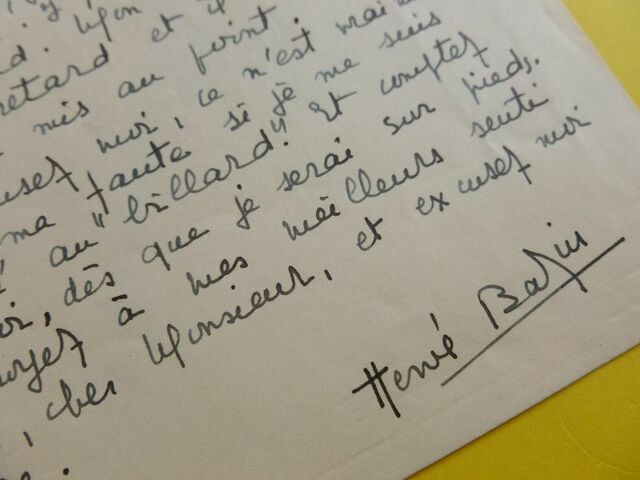 . Mon
retard et il
mis au point.
moi, ce n'est
ma faute si je me suis
au "billard". Et comptez
, dès que je serai sur pieds.
à mes meilleurs senti
, cher Monsieur, et excusez moi
Hervé Bazin